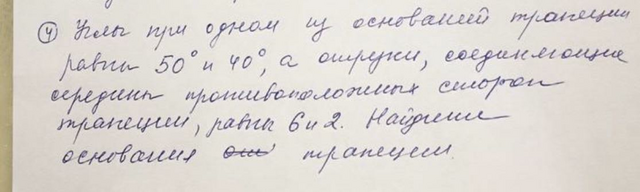 ④ Углы при одном из оснований трапеции
равны 50° и 40°, а отрезки, соединяющие
середины противоположных сторон
трапеции, равны 6 и 2. Найдите
основания трапеции.